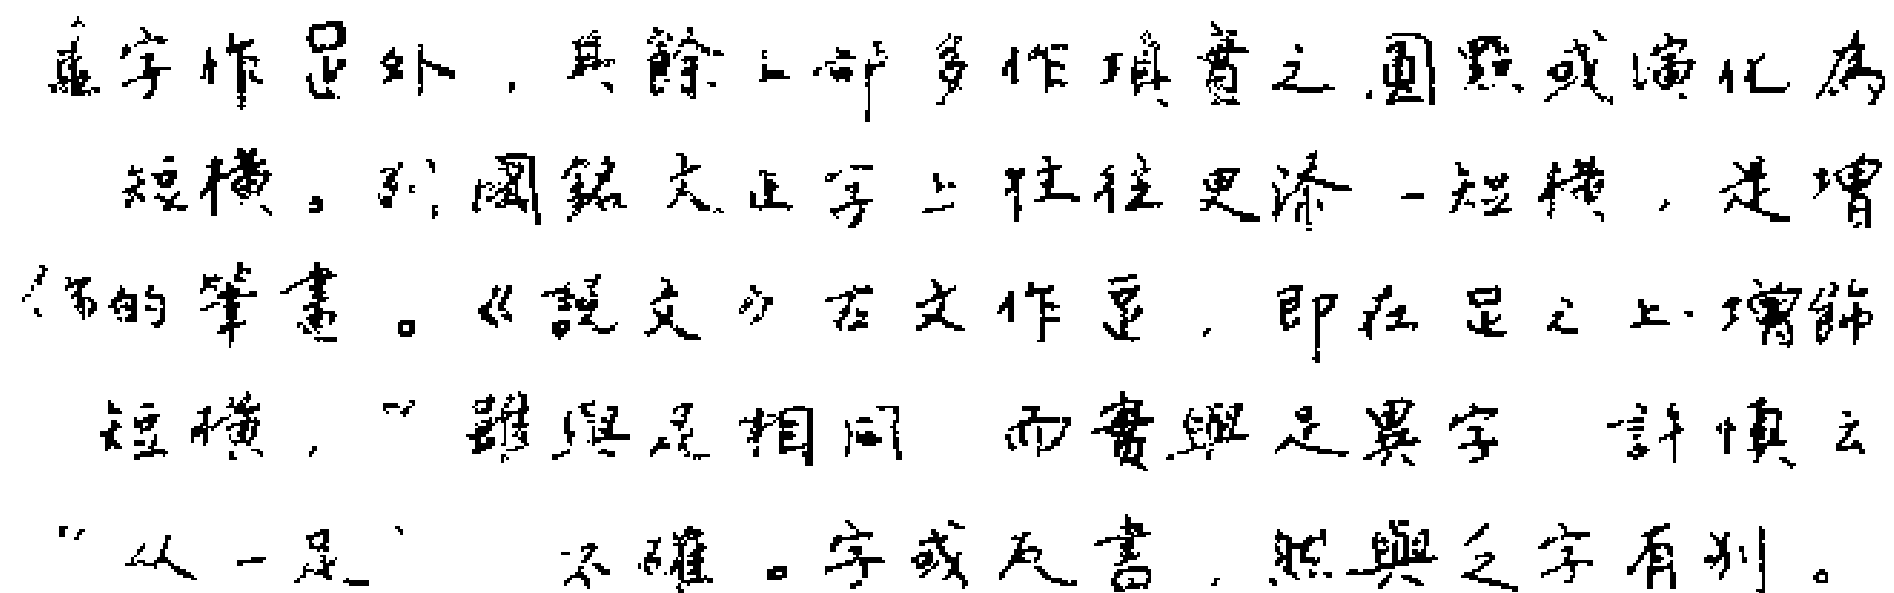 字作𤴓外，其餘上部多作填實之圓點或演化為
短橫。列國銘文正字上往往更添一短橫，是增
飾的筆畫。《說文》古文作𧾷，即在足之上增飾
短橫，雖與足相同 而實與足異字 許慎云
“从一足” 不確。字或反書，然與乏字有別。